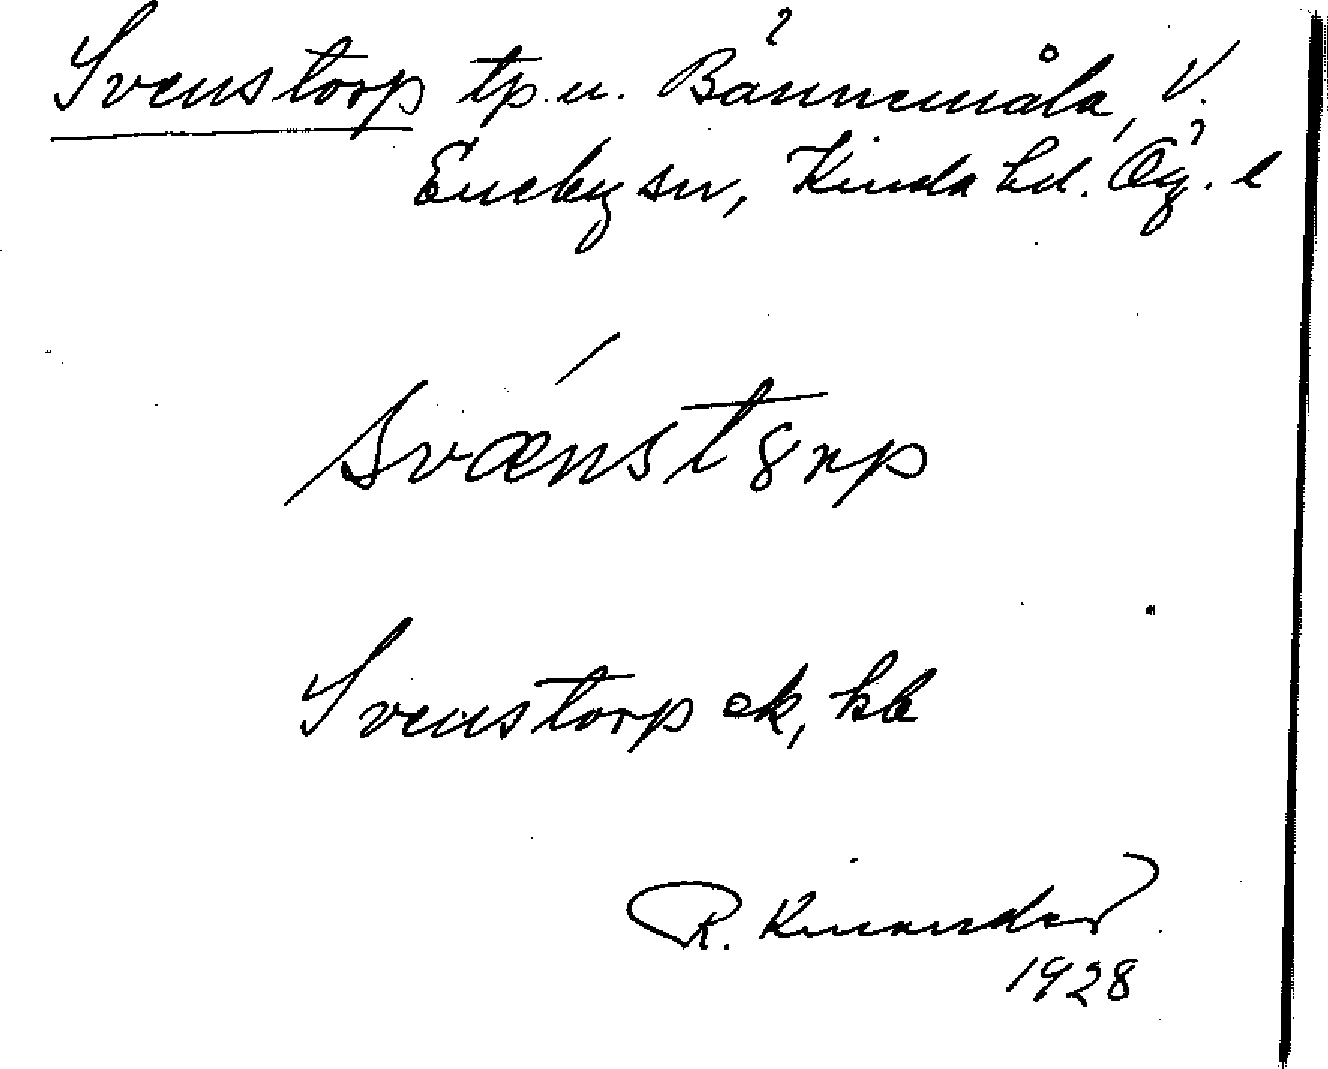 Svenstorp tp. u. Bännemåla, V.
Eneby sn, Kinda hd. Ög. l
svænst8rp
Svenstorp ek, hb
R. Kinander
1928